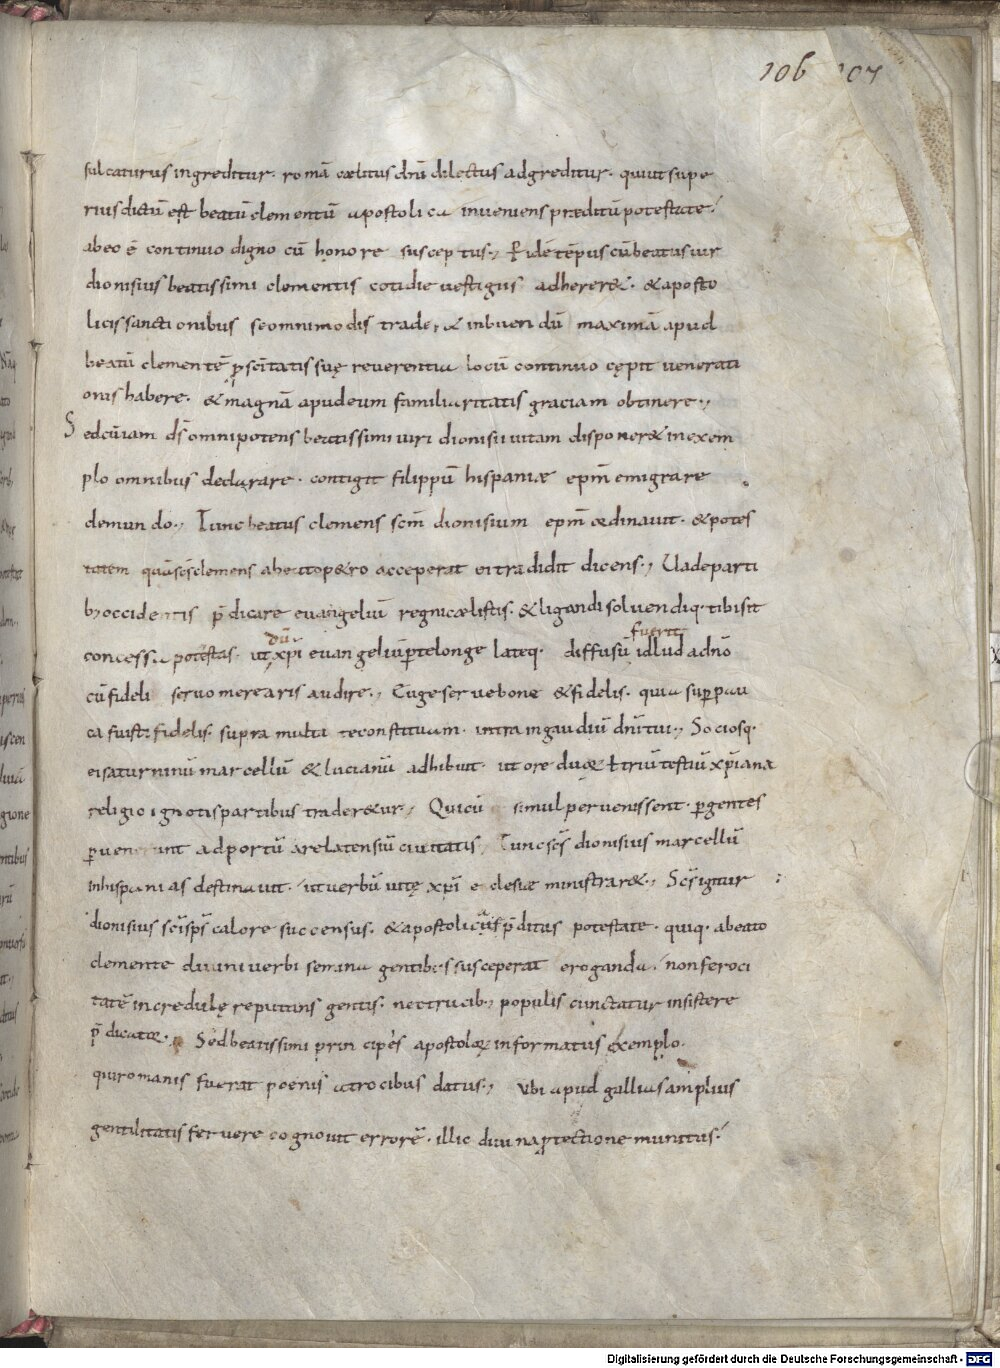 106 107
sulcaturus ingreditur. romā cælitus dn̄i dilectus adgreditur. quiut supe
rius dictū est beatū clementū apostolica inueniens præditū potestate.
abeo ē continuo digno cū honore susceptus., P idē tēpus cū beatus uir
dionisius beatissimi clementis cotidie uestigiis adherer&. & aposto
licis sanctionibus se omnimodis trader& inbuendū maximā apud
beatū clementē p̱ scītatis suę reuerentia locū continuo cępit uenerati
onis habere. & magnā apud eum familiaritatis graciam obtinere.,
Sed cū iam ds̄ omnipotens beatissimi uiri dionisii uitam disponer& in exem
plo omnibus declarare. contigit filippū hispaniæ epm̄ emigrare
demundo., Tunc beatus clemens scm̄ dionisium epm̄ ordinauit. & potes
tatem quā scs̄ clemens abeato p&ro acceperat ei tradidit dicens., Uade parti
b; occidentis p̄dicare euangeliū regni cælistis. & ligandi soluendiq. tibi sit
concessa potestas. ut dū xp̄i euangeliū p̱ te longe lateq. diffusū fuerit idlud adn̄o
cū fideli seruo merearis audire., Euge serue bone & fidelis. quia sup̱ pau
ca fuisti fidelis. supra multa te constituam. intra in gaudiū dn̄i tui., Sociosq.
ei saturninū marcellū & lucianū adhibuit. ut ore duor̄ ł triū testiū xp̄iana
religio ignotis partibus trader&ur., Qui cū simul peruenissent. p̱gentes
p̱uenerunt ad portū arelatensiū ciuitatis. Tunc scs̄ dionisius marcellū
in hispanias destinauit. ut uerbū uitę xp̄i eclesiæ ministrar&., Scs̄ igitur
dionisius scī sps̄ calore succensus. & apostolica p̄ditus potestate. quiq. abeato
clemente diuini uerbi semina gentibus susceperat eroganda. non feroci
tatē incredulę reputans gentis. nec trucib; populis cunctatur insistere
p̄dicator., Sed beatissimi principes apostolor̄ informatus exemplo.
qui romanis fuerat poenis atrocibus datus., Ubi apud gallias amplius
gentilitatis feruere cognouit errorē. illic diuina p̱tectione munitus.
Digitalisierung gefördert durch die Deutsche Forschungsgemeinschaft - DFG